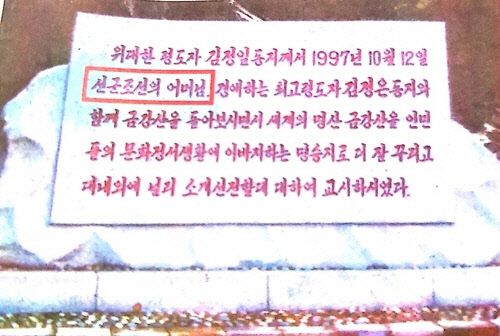 위대한 령도자 김정일동지께서 1997년 10월 12일
선군조선의 어머님, 경애하는 최고령도자 김정은동지와
함께 금강산을 돌아보시면서 세계의 명산 금강산을 인민
들의 문화정서생활에 이바지하는 명승지로 더 잘 꾸리고
대내외에 널리 소개선전할데 대하여 교시하시였다.